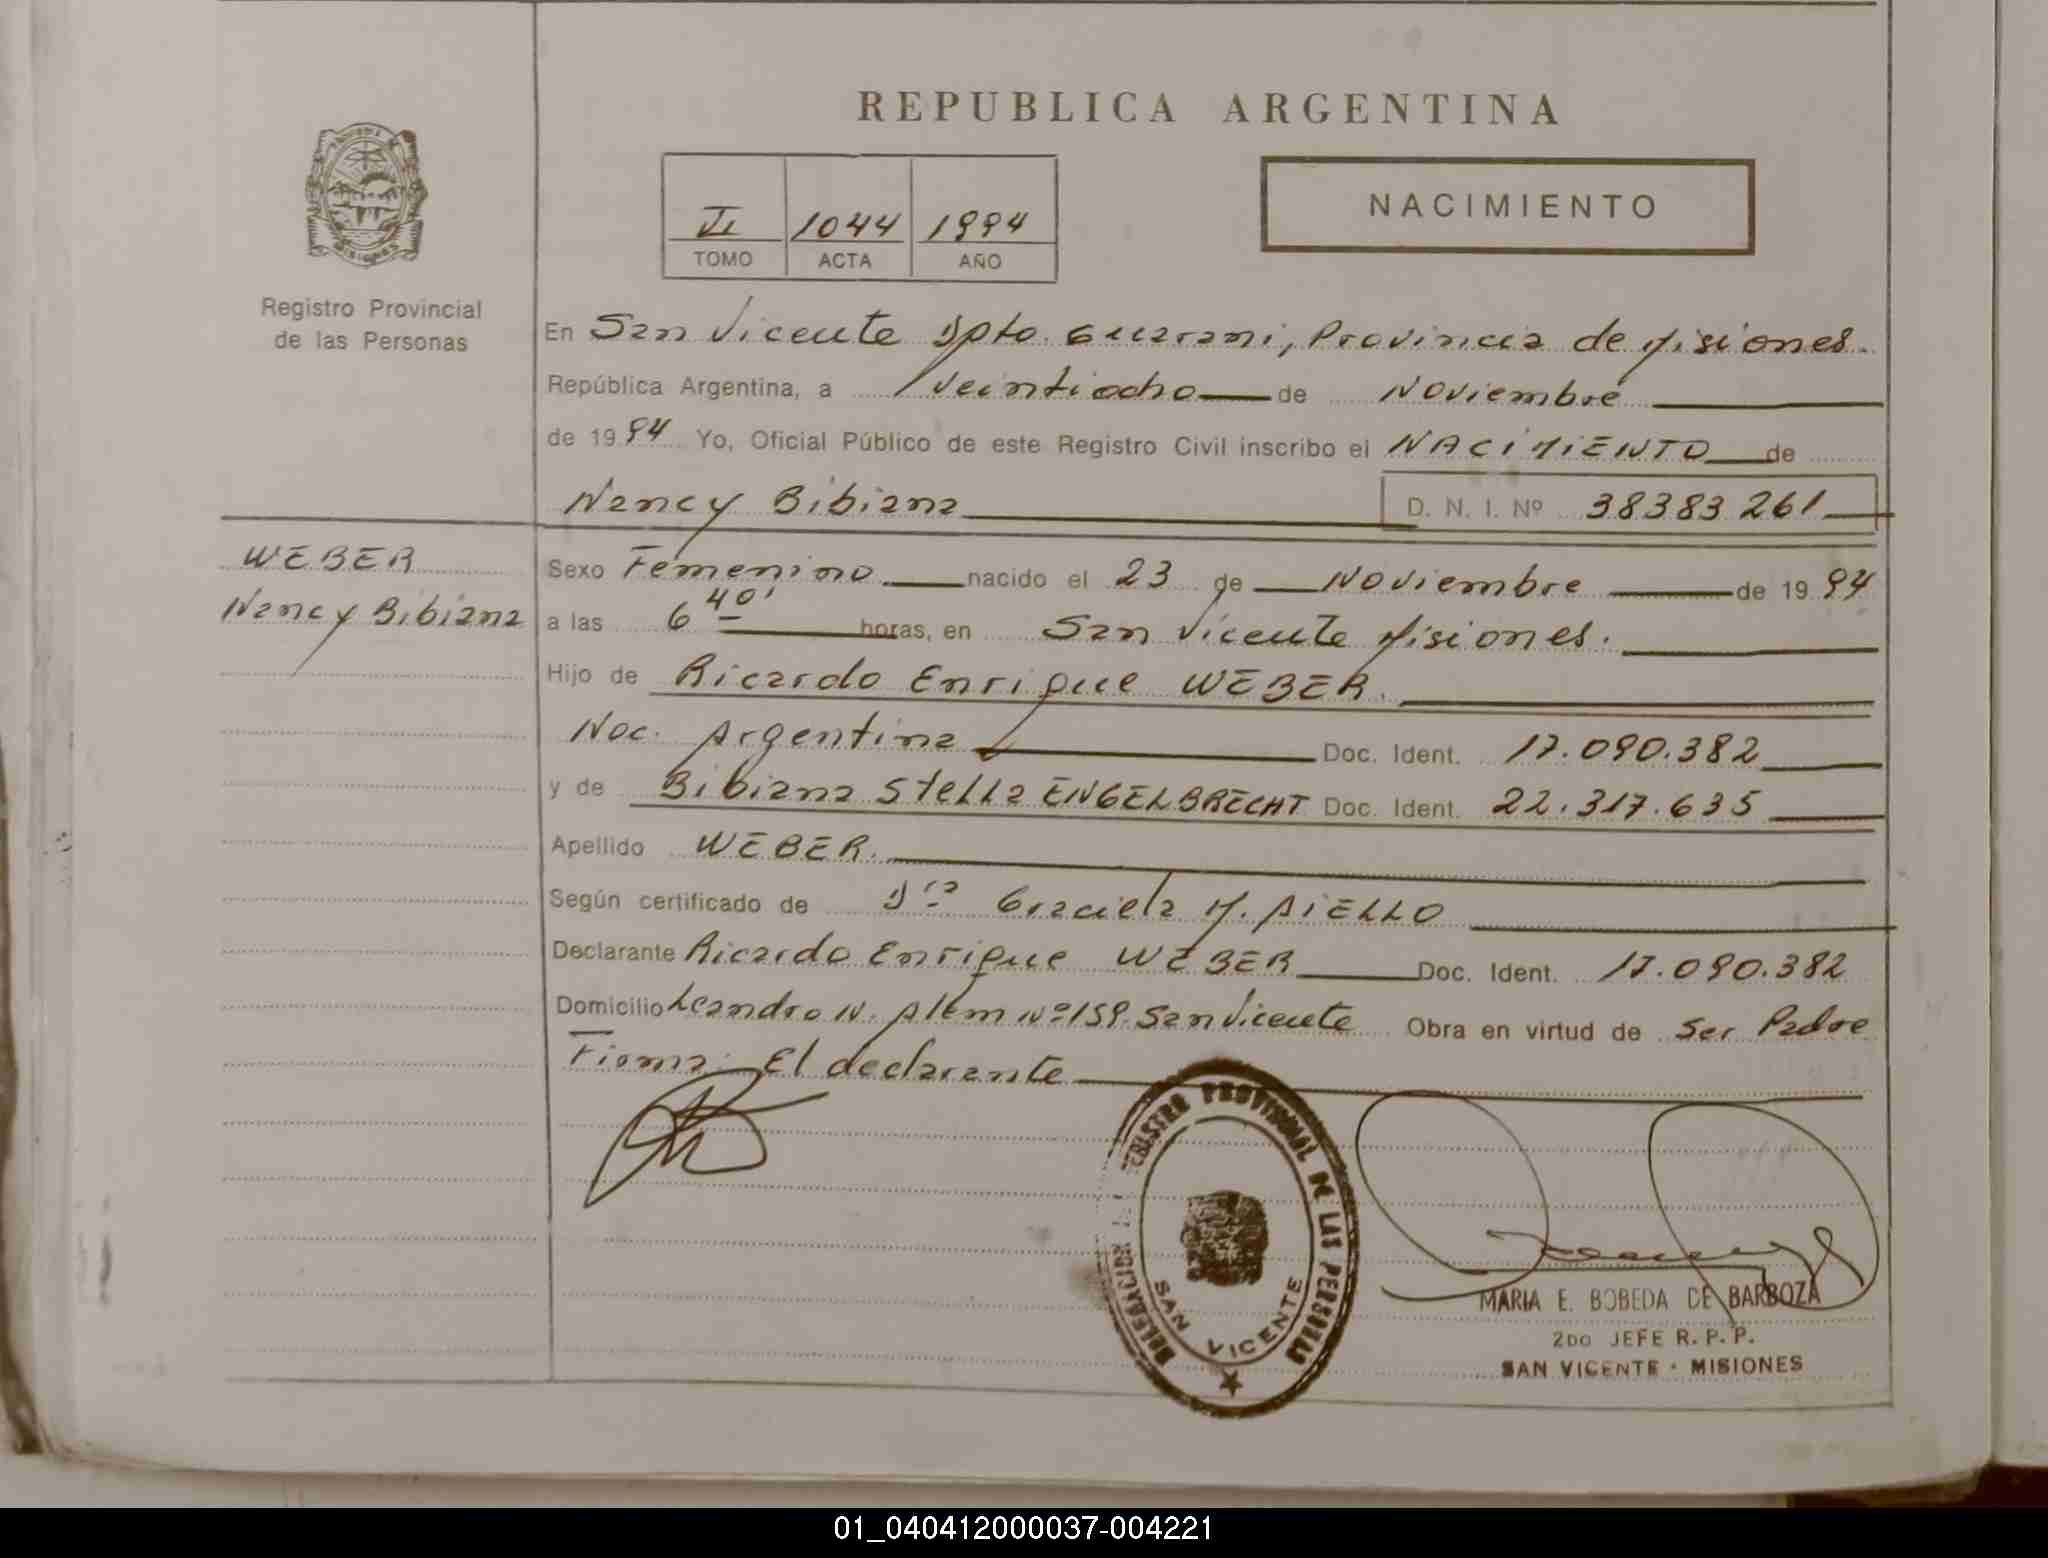 REPUBLICA ARGENTINA
NACIMIENTO
VI 1044 1994
TOMO ACTA AÑO
MISIONES
Registro Provincial
de las Personas
En San Vicente Dpto. Guarani, Provincia de Misiones.
República Argentina, a Veintiocho de Noviembre
de 1994 Yo, Oficial Público de este Registro Civil inscribo el NACIMIENTO de
Nancy Bibiana D. N. I. Nº 38383261
WEBER
Nancy Bibiana
Sexo Femenino nacido el 23 de Noviembre de 1994
a las 6 40' horas, en San Vicente Misiones.
Hijo de Ricardo Enrique WEBER.
Nac. Argentina Doc. Ident. 17.090.382
y de Bibiana Stella ENGELBRECHT Doc. Ident. 22.317.635
Apellido WEBER.
Según certificado de Dra Graciela M. AIELLO
Declarante Ricardo Enrique WEBER Doc. Ident. 17.090.382
Domicilio Leandro N. Alem Nº 159. San Vicente Obra en virtud de Ser Padre
Firma: El declarante
REGISTRO PROVINCIAL DE LAS PERSONAS
DELEGACION
SAN VICENTE
MARIA E. BOBEDA DE BARBOZA
2DO JEFE R. P. P.
SAN VICENTE - MISIONES
01_040412000037-004221